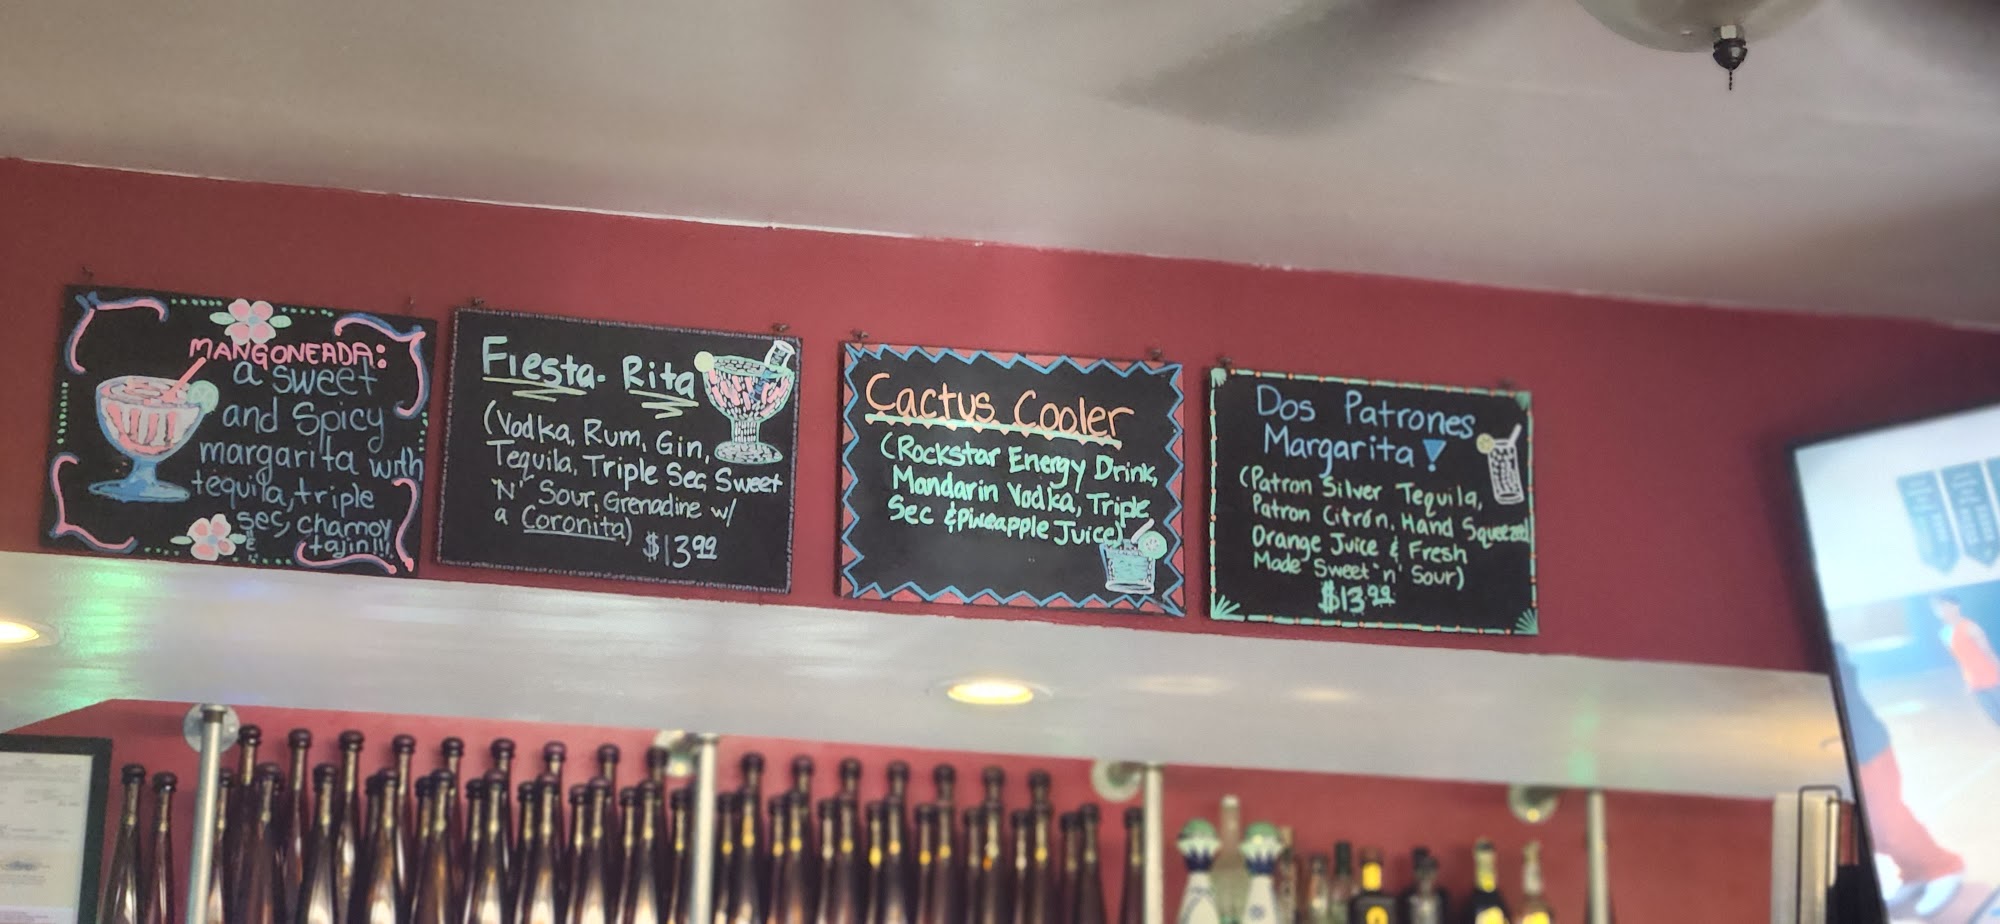 MANGONEADA:
a sweet
and Spicy
margarita with
tequila, triple
sec, chamoy
tajin!!!
Fiesta-Rita
(Vodka, Rum, Gin,
Tequila, Triple Sec, Sweet
'N' Sour, Grenadine w/
a Coronita)
$13.99
Cactus Cooler
(Rockstar Energy Drink,
Mandarin Vodka, Triple
Sec & Pineapple Juice)
Dos Patrones
Margarita!
(Patron Silver Tequila,
Patron Citrón, Hand Squeezed
Orange Juice & Fresh
Made Sweet 'n' Sour)
$13.99